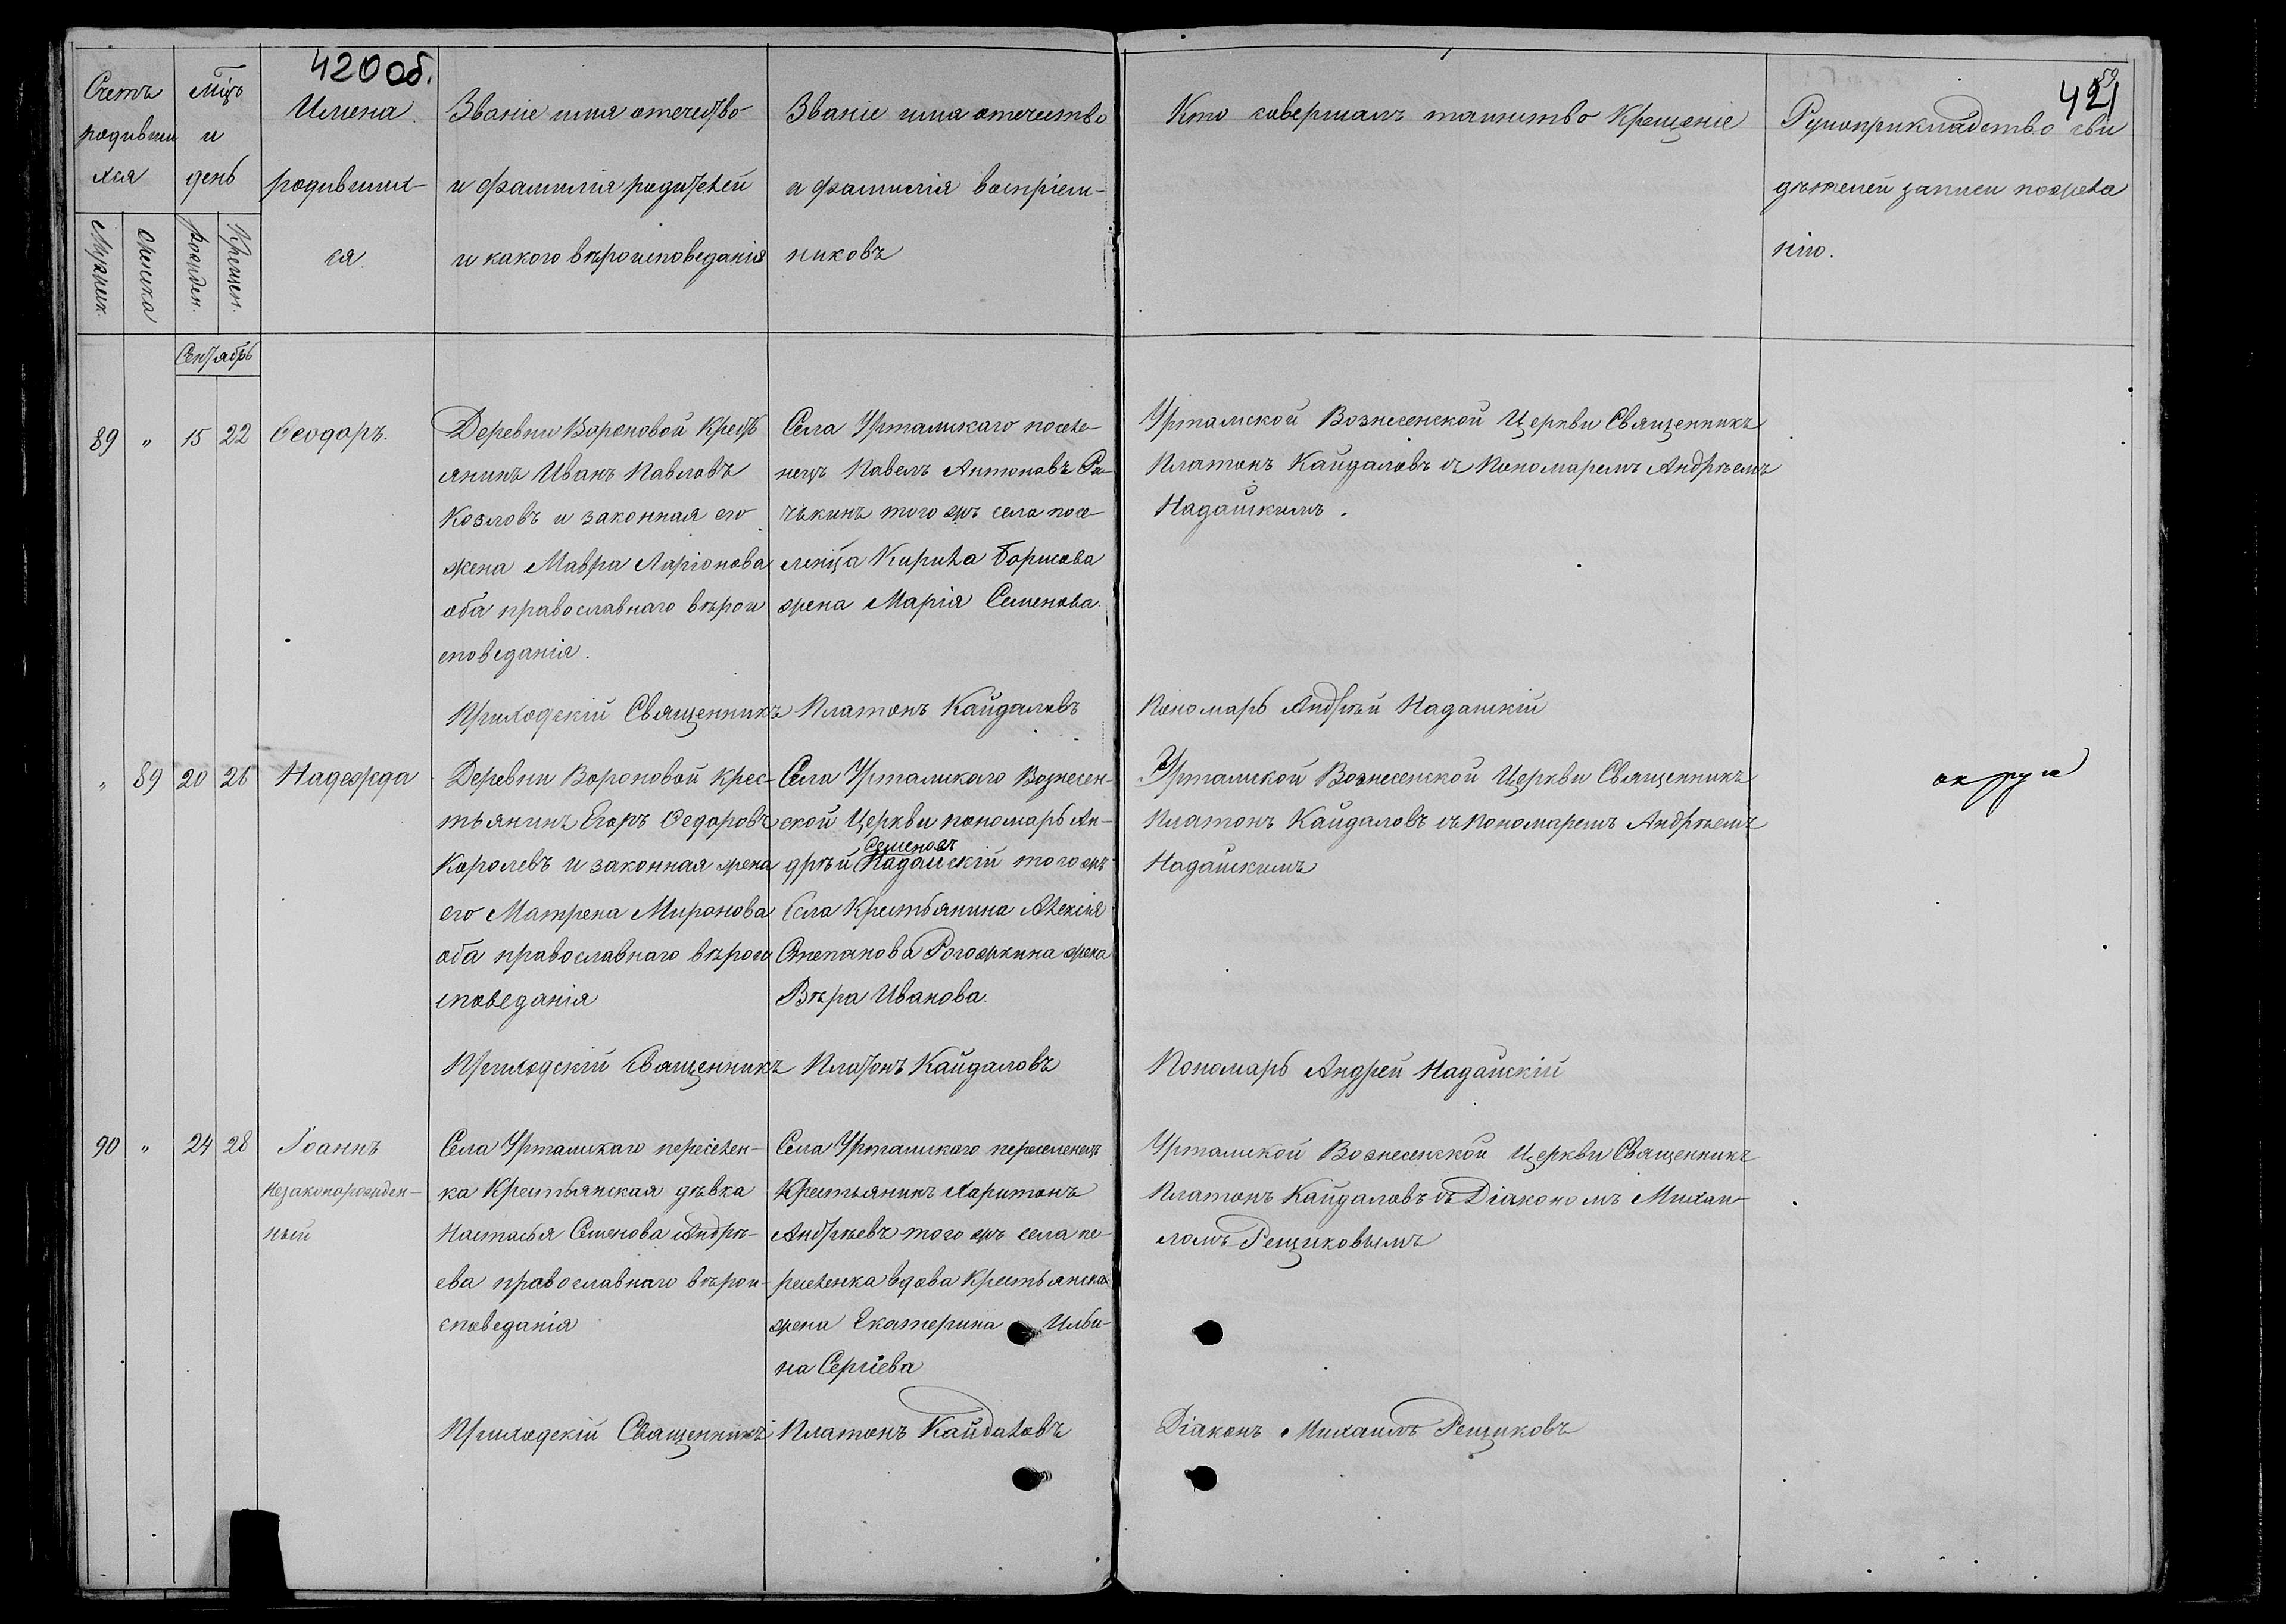 420об.
Счетъ
родивши
хся
Мужеск.
Женска
Мѣцъ
и
день
Рожден.
Крещен.
Имена
родивших-
ся.
Званіе имя отечество
и фамилія родителей
и какого вѣроисповеданія
Званіе имя отечество
и фамилія воспріем-
никовъ
Кто совершалъ таинство Крещеніе
421
59
Рукоприкладство сви
дѣтелей записи по жела
нію.
Сентябрь
89 " 15 22 Ѳеодоръ.
Деревни Вороновой Крест
янинъ Иванъ Павловъ
Козловъ и законная его
жена Мавра Ларіонова
оба православнаго вѣрои
споведанія.
Села Уртамскаго поселе-
нецъ Павелъ Антоновъ
того жъ села посе-
ленца Кирила Борисова
жена Марія Семенова.
Уртамской Вознесенской Церкви Священникъ
Платонъ Кайдаловъ съ Пономаремъ Андрѣемъ
Надаискимъ.
Приходскій Священникъ Платонъ Кайдаловъ
Пономарь Андрѣй Надаискій
" 89 20 26 Надежда
Деревни Вороновой Крес-
тьянинъ Егоръ Ѳедоровъ
Королевъ и законная жена
его Матрена Миронова
оба православнаго вѣрои
споведанія
Села Уртамскаго Вознесен-
ской Церкви пономарь Ан-
Семеновъ
дрѣй Надаискій того жъ
Села Крестьянина Алексія
Степанова Рогожкина жена
Вѣра Иванова.
Уртамской Вознесенской Церкви Священникъ
Платонъ Кайдаловъ съ Пономаремъ Андрѣемъ
Надаискимъ
Приходскій Священникъ Платонъ Кайдаловъ
Пономарь Андрей Надаискій
90 " 24 28 Іоаннъ
Незаконорожден-
ный
Села Уртамскаго переселен-
ка Крестьянская дѣвка
Настасья Семенова Андрѣ-
ева православнаго вѣрои-
споведанія
Села Уртамскаго переселенецъ
Крестьянинъ Харитонъ
Андрѣевъ того жъ села пе-
реселенка вдова Крестьянска
жена Екатерина Ильи-
на Сергіева
Уртамской Вознесенской Церкви Священникъ
Платонъ Кайдаловъ съ Діакономъ Михаи-
ломъ Рещиковымъ
Приходскій Священникъ Платонъ Кайдаловъ
Діаконъ Михаилъ Рещиковъ